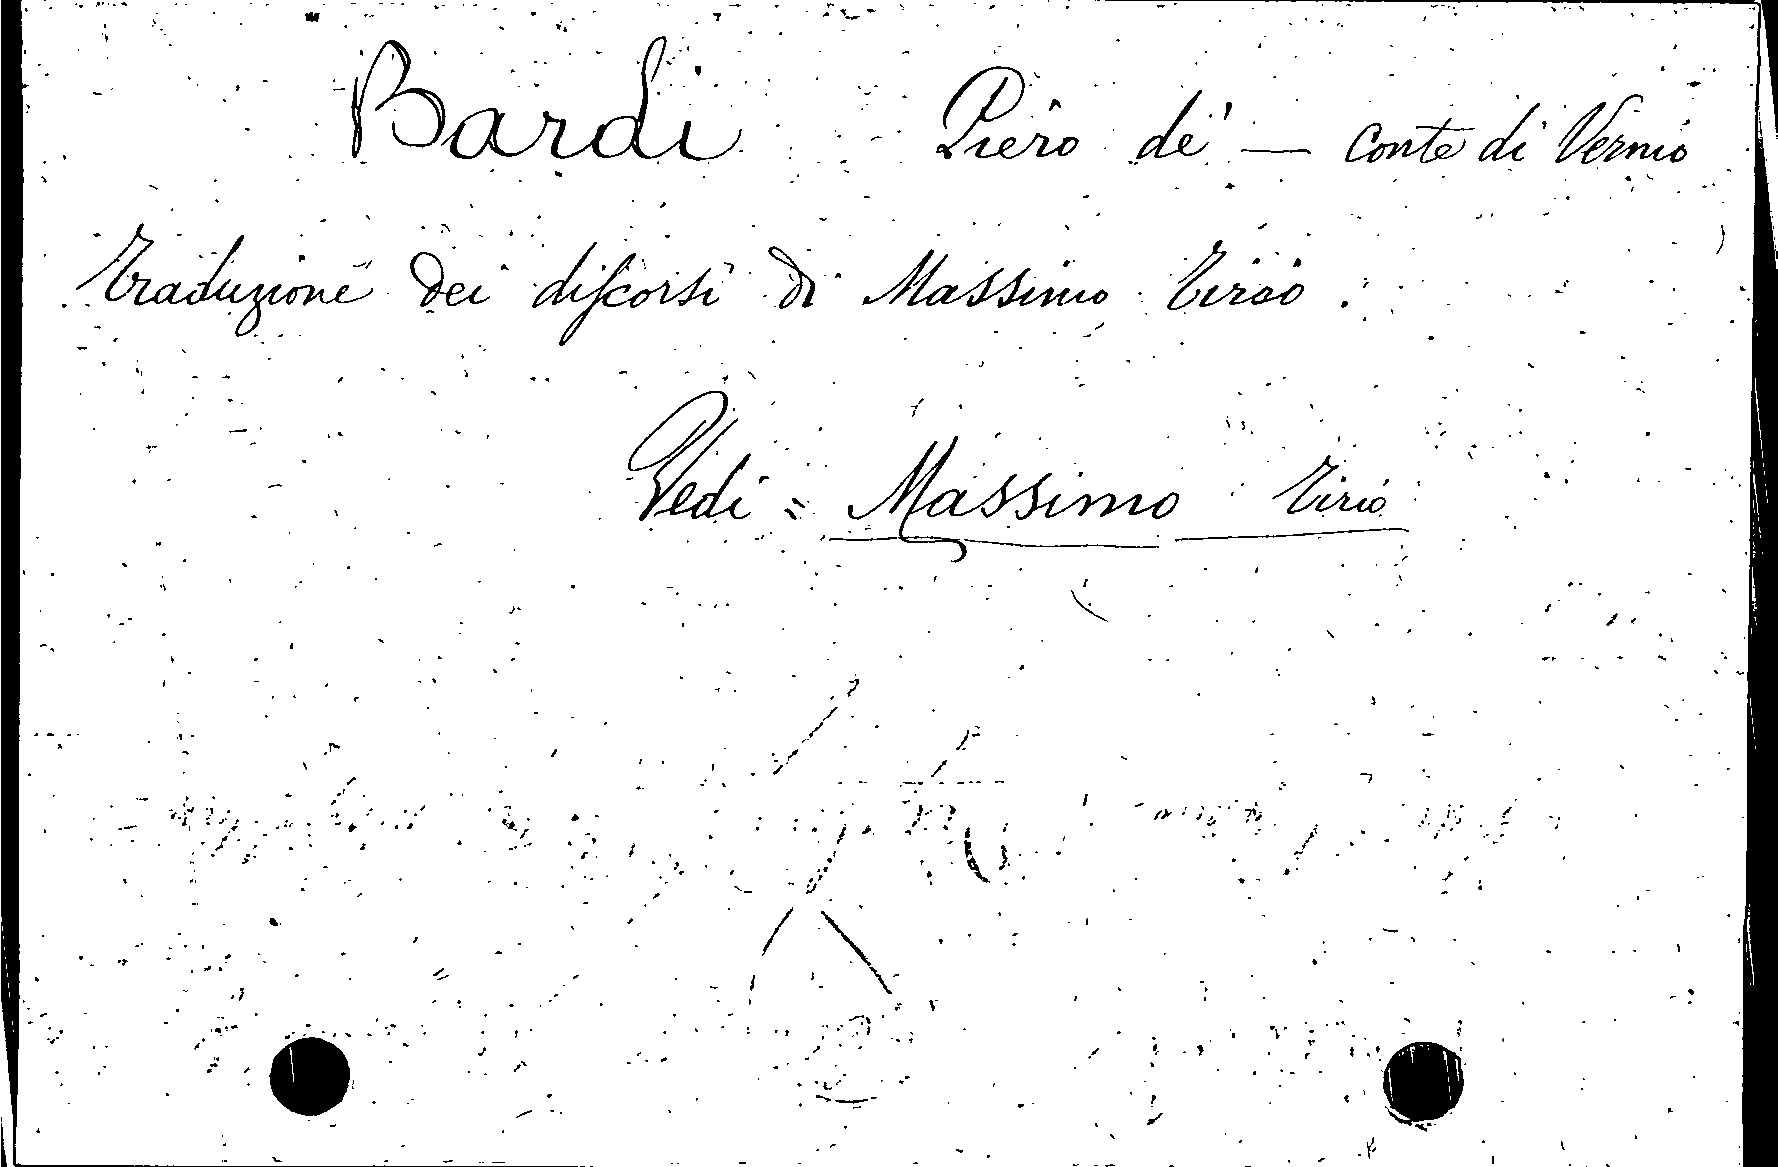 Bardi Piero de' — Conte di Vernio
Traduzione dei discorsi di Massimo Tirio.
Vedi = Massimo Tirio